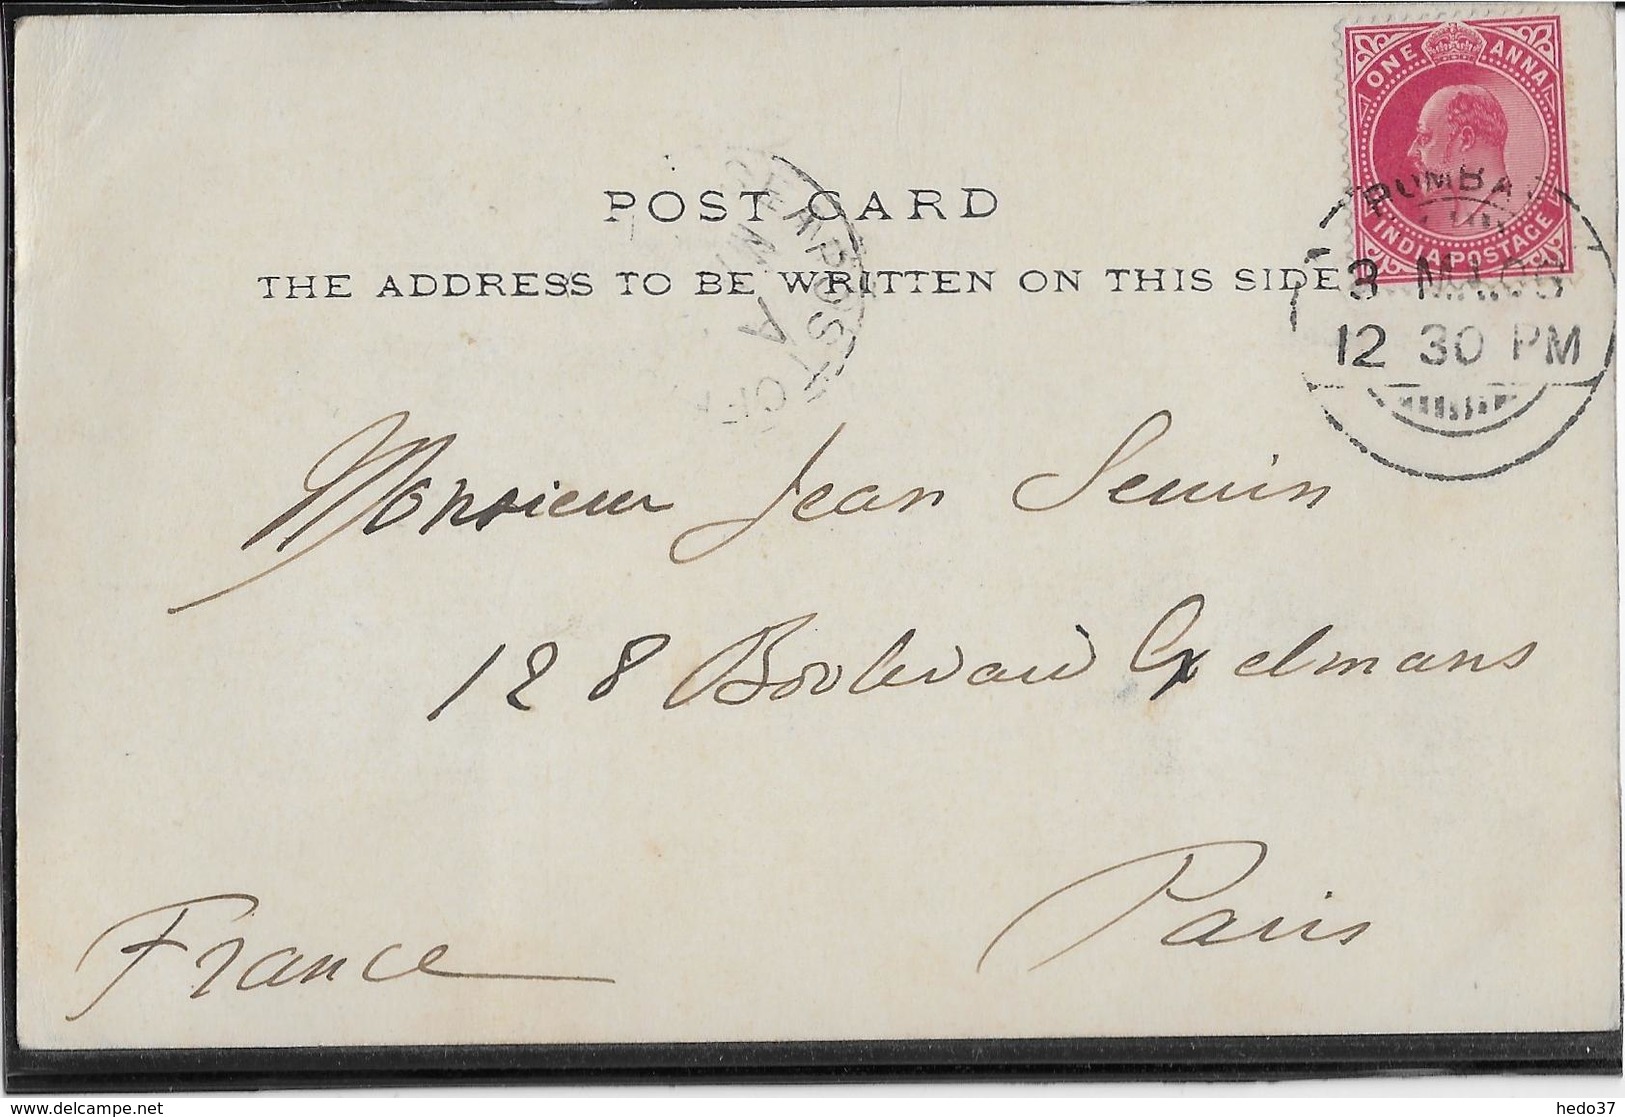 ONE ANNA
INDIA POSTAGE
POST CARD
THE ADDRESS TO BE WRITTEN ON THIS SIDE
BOMBA
12 30 PM
Monsieur Jean
128 Boulevard Exelmans
Paris
France
© www.delcampe.net
hedo37